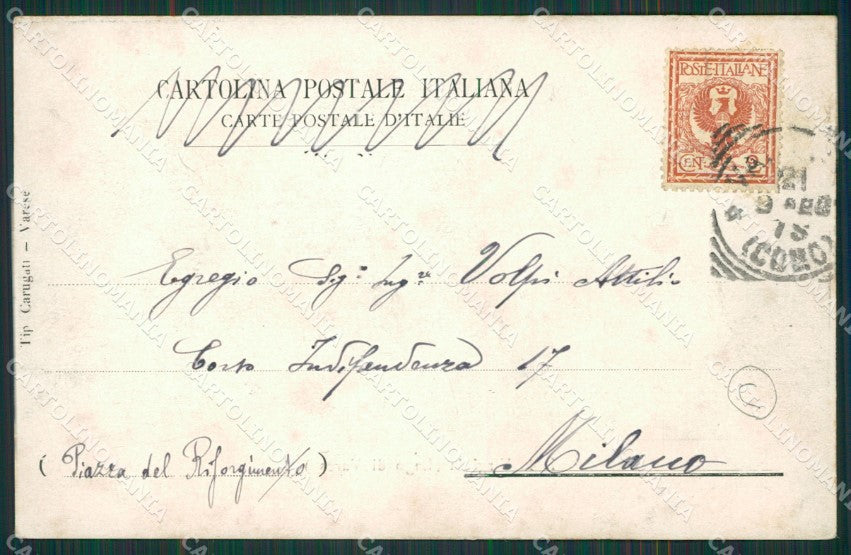 CARTOLINA POSTALE ITALIANA
CARTE POSTALE D'ITALIE
POSTE·ITALIANE
CENT. 2
21
(COMO)
Tip Carugati — Varese
Egregio Sig. Ing. Volpi Attilio
Corso Indipendenza 17
Milano
(Piazza del Risorgimento)
CARTOLINOMANIA